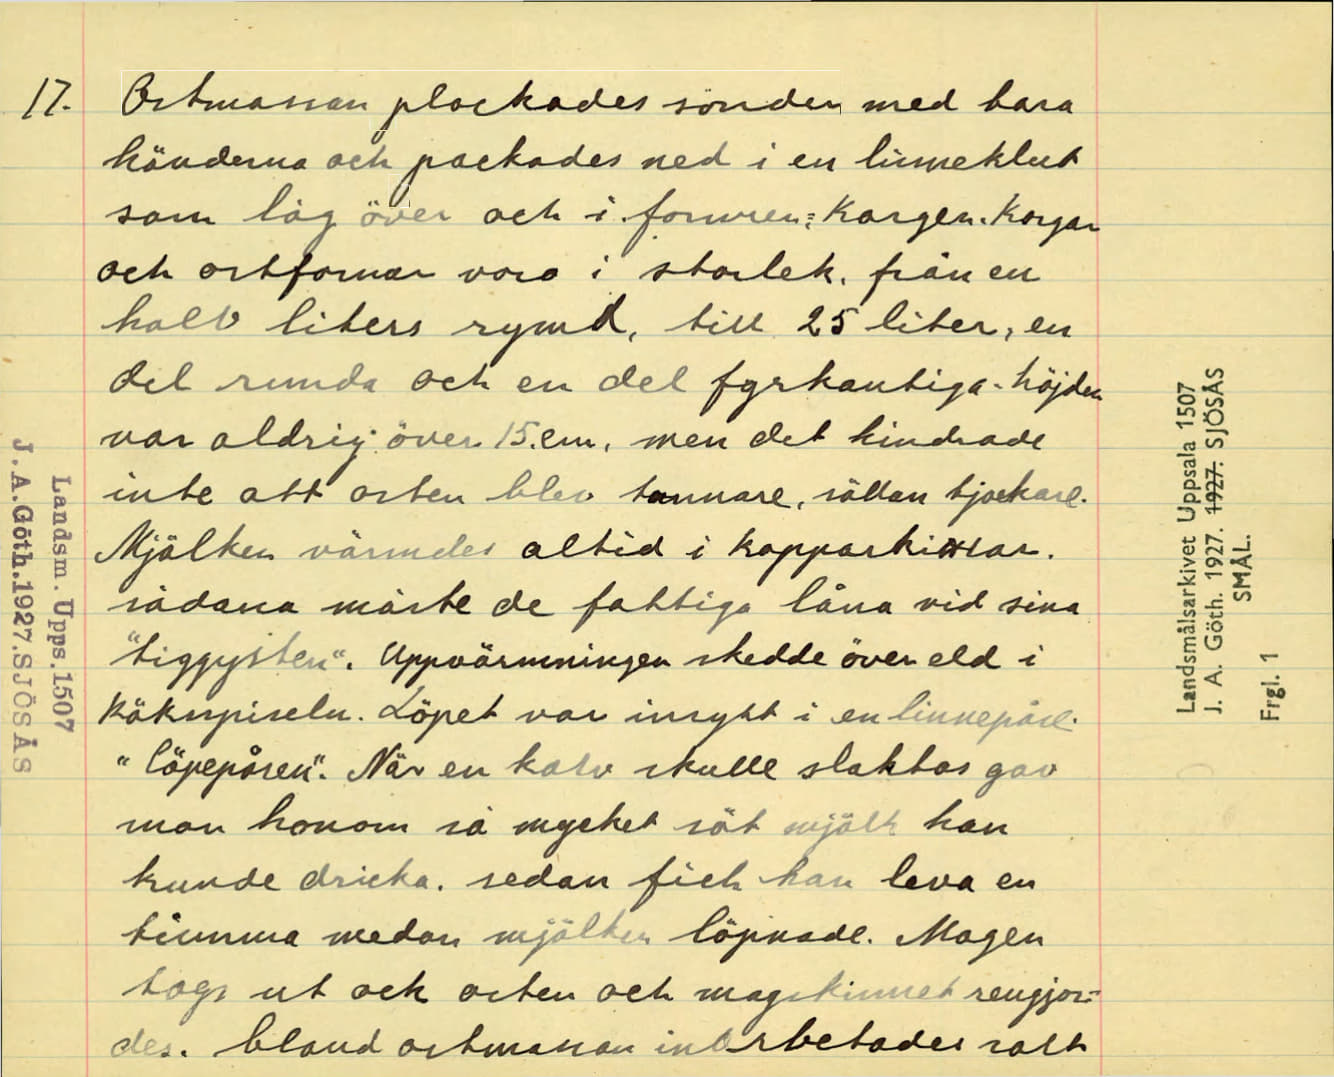 17. Ostmassan plockades sönder, med bara
händerna och packades ned i en linneklut
som låg över och i formen = korgen. Korgar
och ostformar voro i storlek, från en
halv liters rymd, till 25 liter, en
del runda och en del fyrkantiga. höjden
var aldrig över 15.cm, men det hindrade
inte att osten blev tunnare, sällan tjockare.
Mjölken värmdes altid i kopparkittlar.
sådana måste de fattiga låna vid sina
"tiggysten". Uppvärmningen skedde över eld i
köksspiseln. Löpet var insytt i en linnepåse.
"löpepåsen". När en kalv skulle slaktas gav
man honom så mycket söt mjölk han
kunde dricka. sedan fick han leva en
timma medan mjölken löpnade. Magen
togs ut och osten och magskinnet rengjor=
des. bland ostmassan inarbetades salt
Landsm. Upps. 1507
J.A.Göth.1927.SJÖSÅS
Landsmålsarkivet Uppsala 1507
J. A. Göth. 1927. 1927. SJÖSÅS
SMÅL.
Frgl. 1